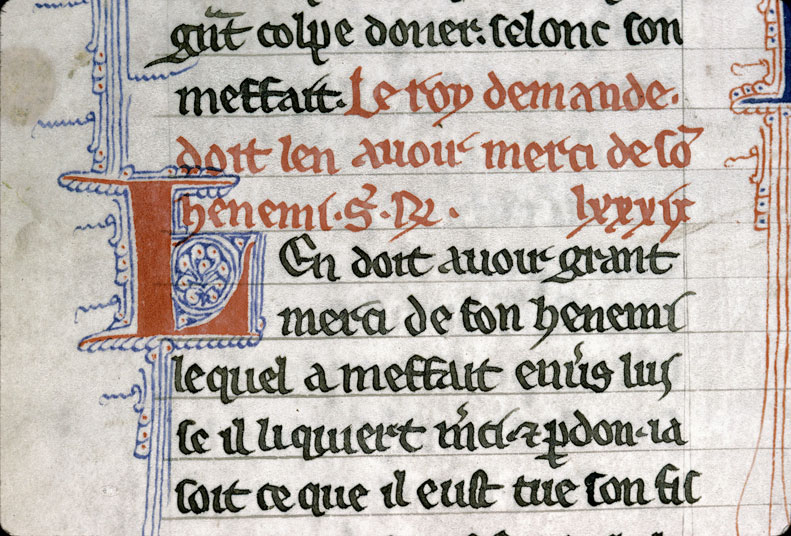 gñt colpe doner. selonc son
meffait. Le roy demande.
doit len auoir merci de sõ
henemi. S. R. lxxxix
Len doit auoir grant
merci de son henemi
lequel a meffait enuers lui
se il li quiert m̃ci. ⁊ ꝑdon. ia
soit ce que il eust tue son fil